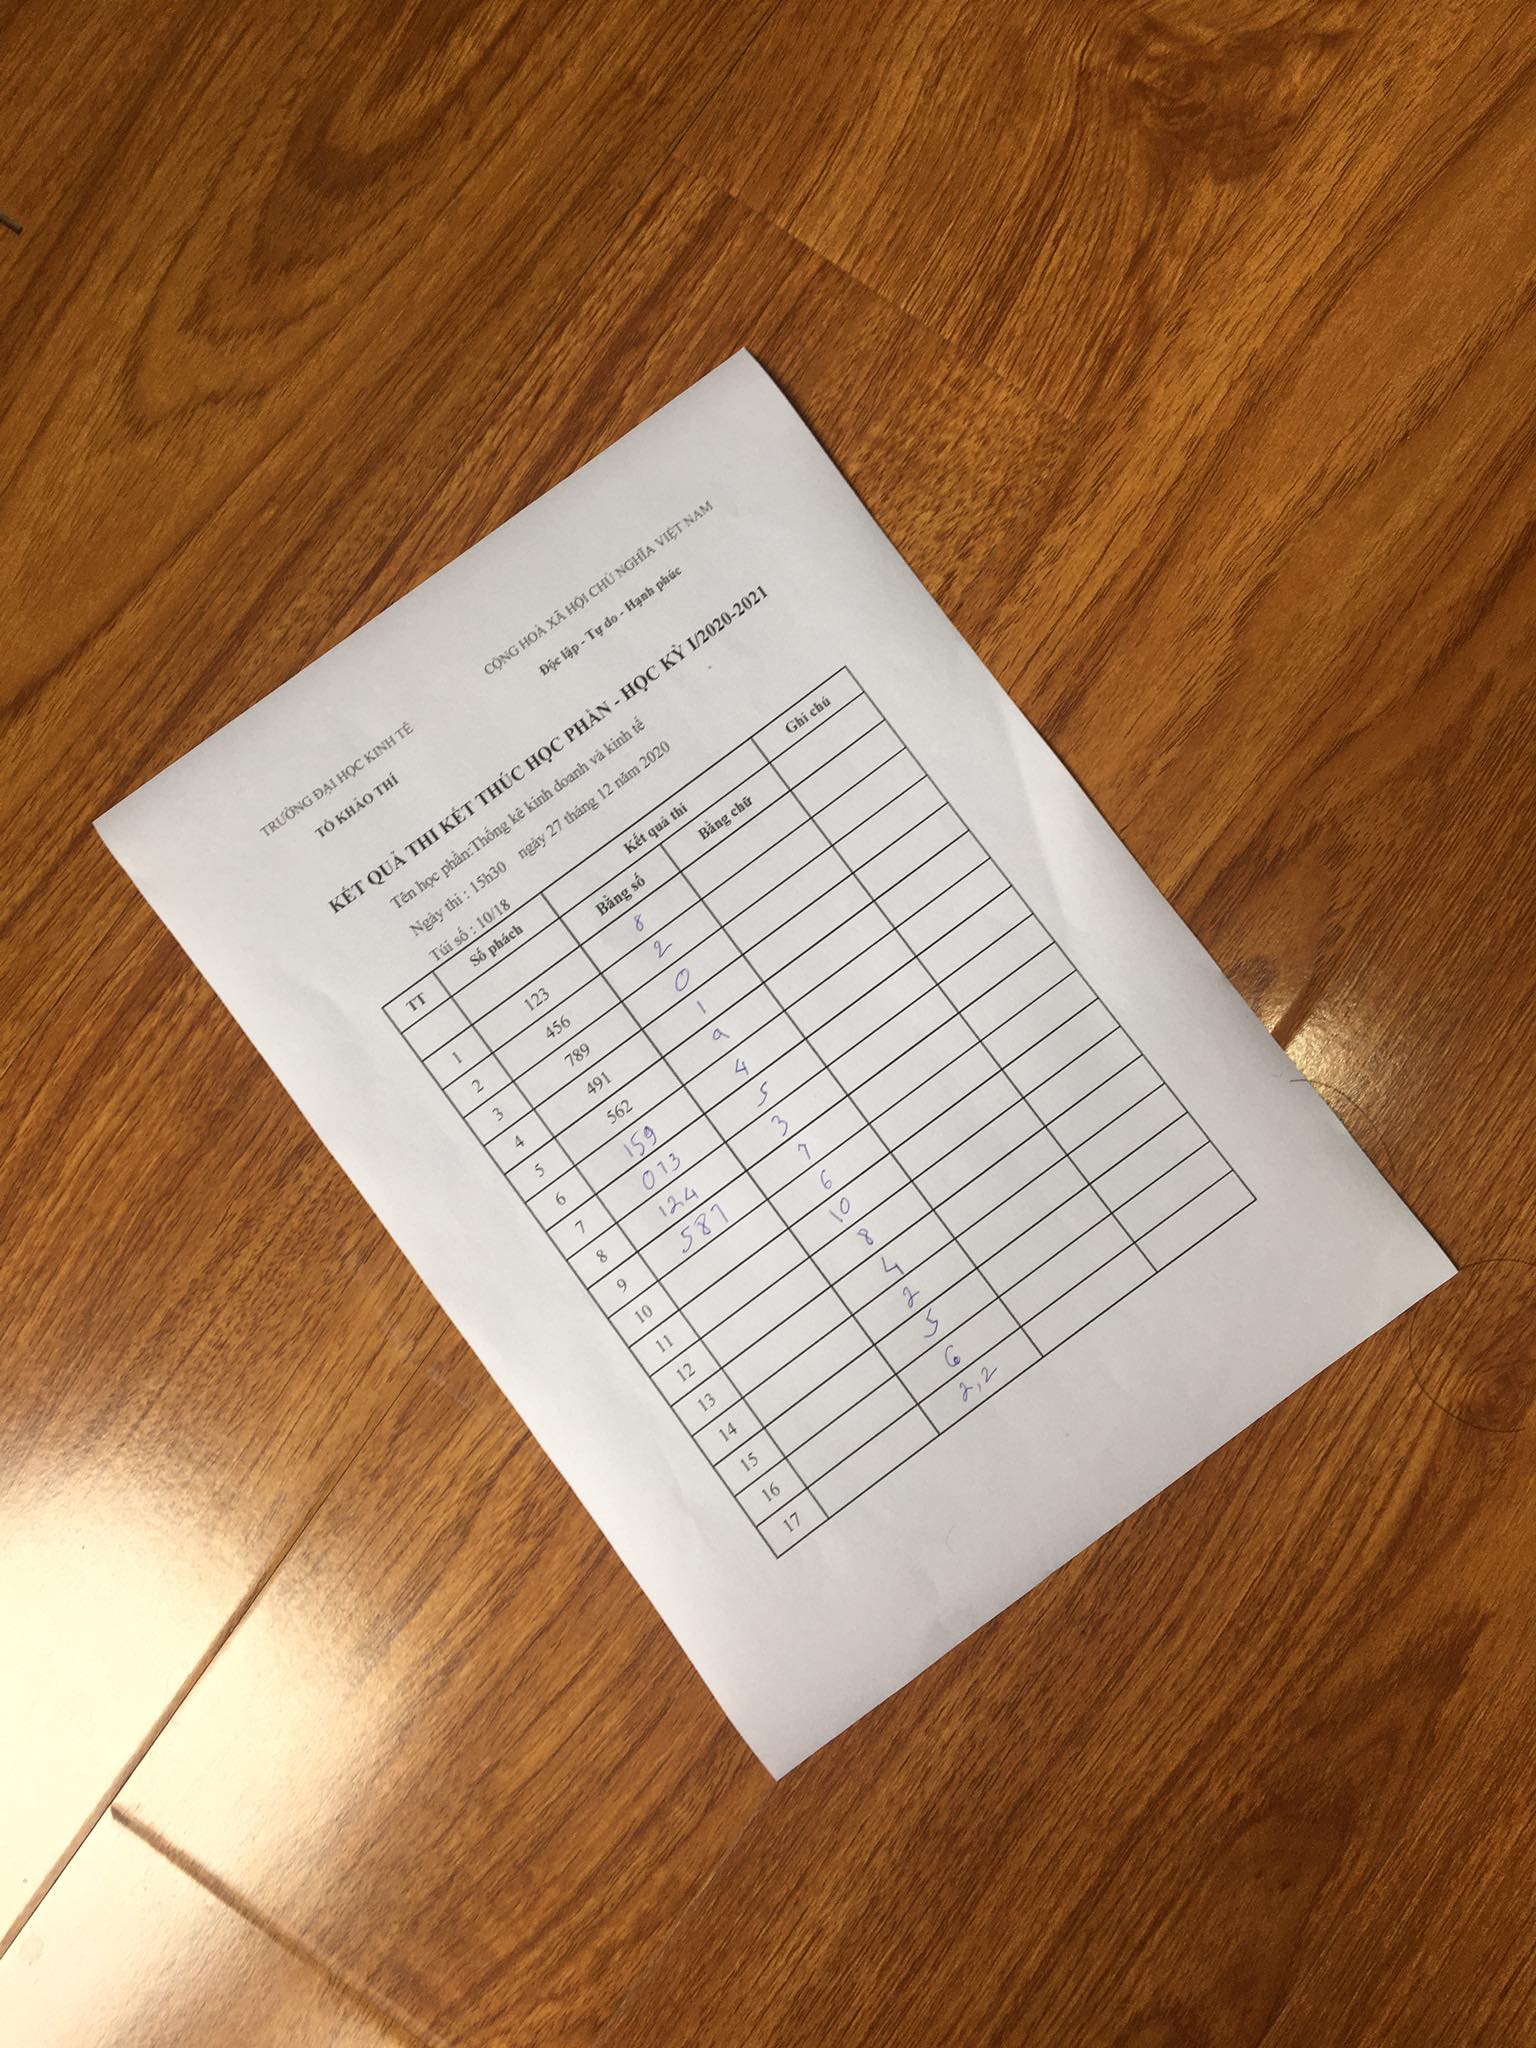 TRƯỜNG ĐẠI HỌC KINH TẾ CỘNG HOÀ XÃ HỘI CHỦ NGHĨA VIỆT NAM
TỔ KHẢO THÍ Độc lập - Tự do - Hạnh phúc
KẾT QUẢ THI KẾT THÚC HỌC PHẦN - HỌC KỲ I/2020-2021
Tên học phần:Thống kê kinh doanh và kinh tế
Ngày thi : 15h30 ngày 27 tháng 12 năm 2020
Túi số : 10/18
TT Số phách Kết quả thi Ghi chú
Bằng số Bằng chữ
1 123 8
2 456 2
3 789 0
4 491 1
5 562 9
6 159 4
7 073 5
8 124 3
9 587 7
10 6
11 10
12 8
13 4
14 2
15 5
16 6
17 2,2